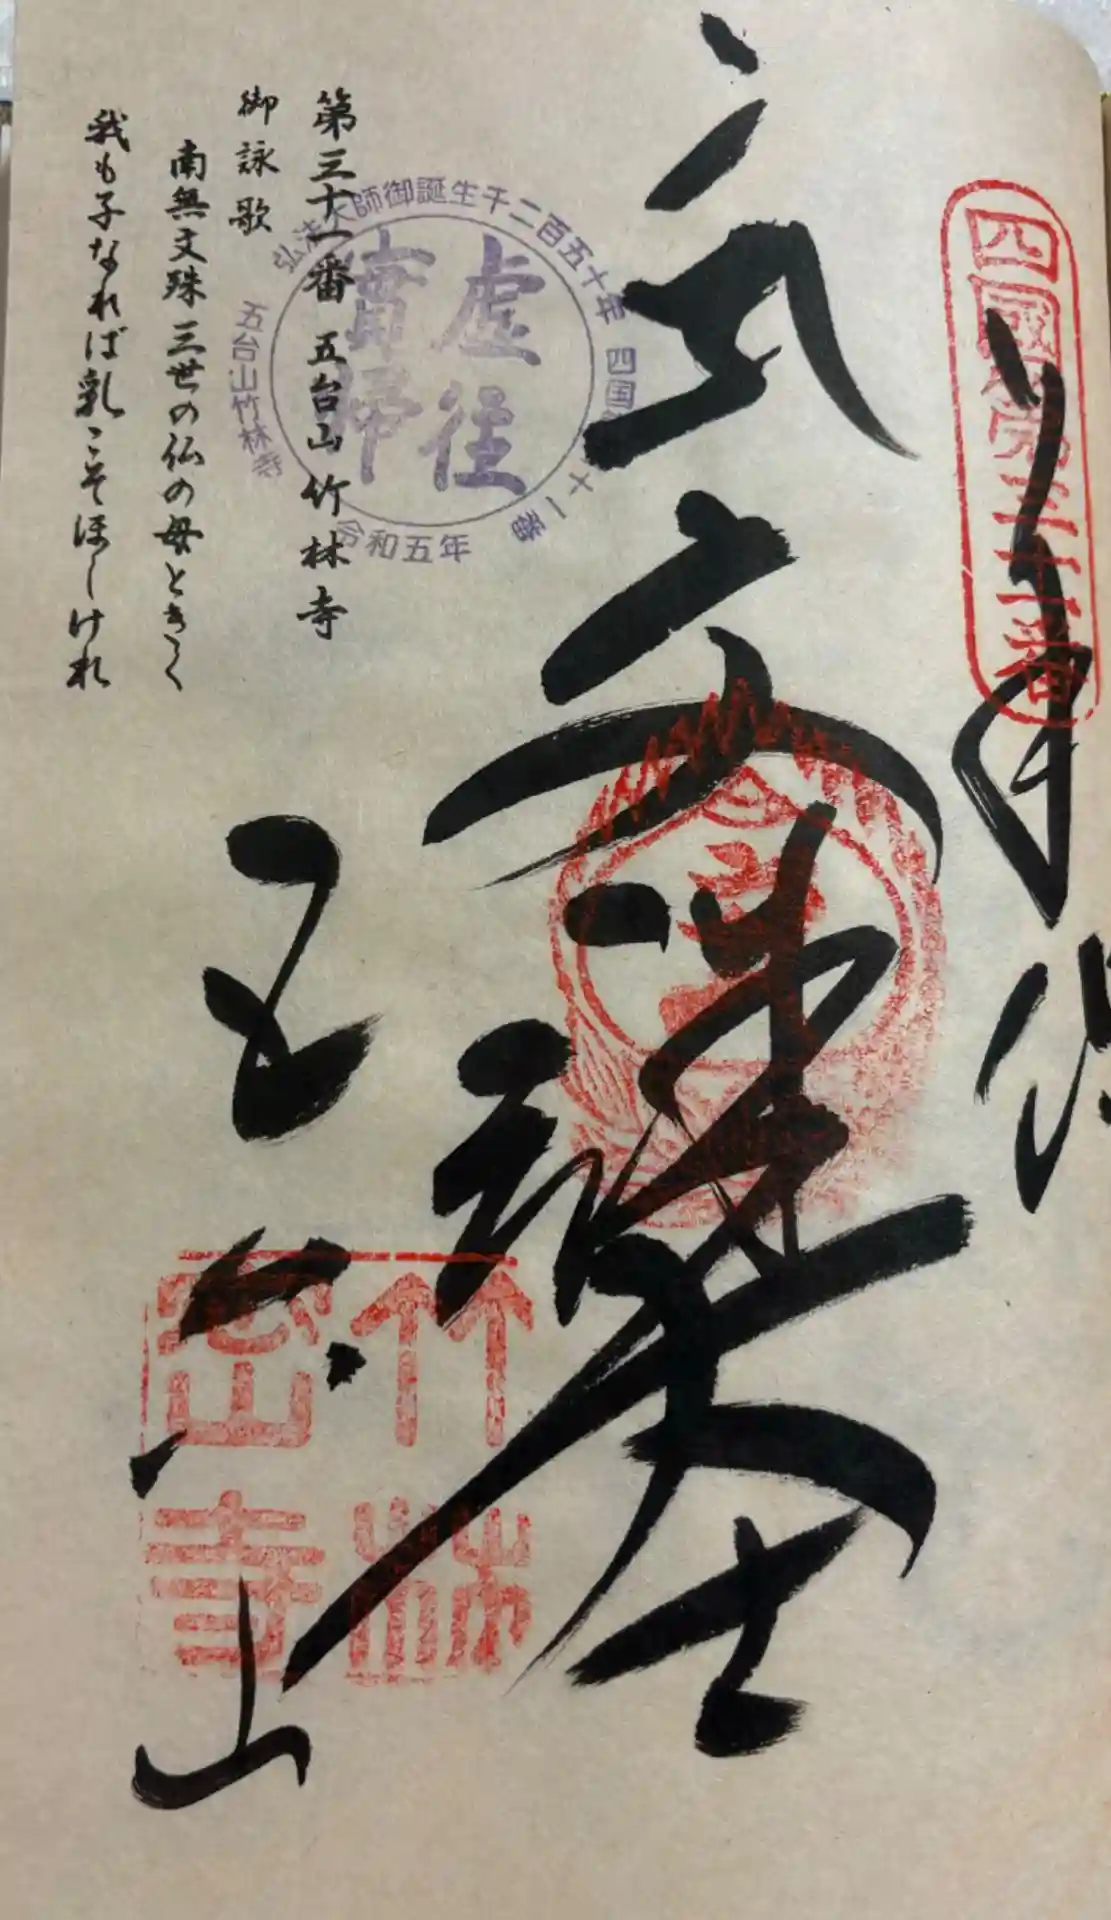 四國第三十一番
奉拝
文殊大士
五台山
竹林
密寺
第三十一番 五台山 竹林寺
御詠歌
南無文殊三世の仏の母ときく
我も子なれば乳こそほしけれ
弘法大師御誕生千二百五十年 四国 十一番
虚往
実帰
五台山竹林寺
令和五年